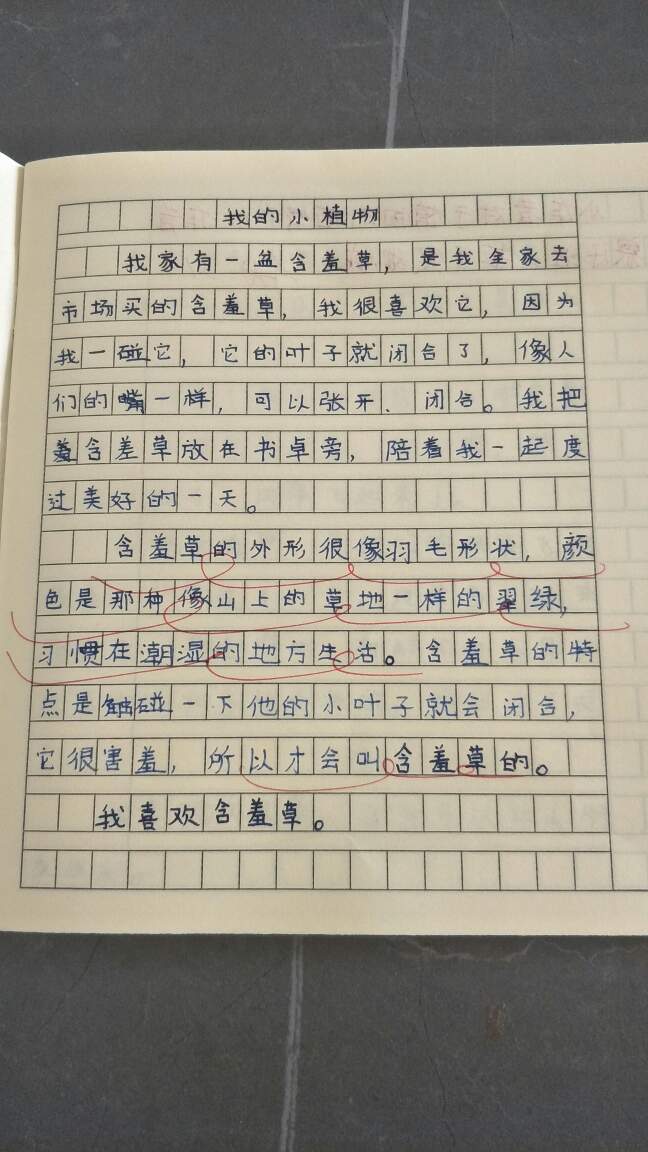 我的小植物
我家有一盆含羞草，是我全家去
市场买的含羞草，我很喜欢它，因为
我一碰它，它的叶子就闭合了，像人
们的嘴一样，可以张开、闭合。我把
羞含差草放在书卓旁，陪着我一起度
过美好的一天。
含羞草的外形很像羽毛形状，颜
色是那种像山上的草地一样的翠绿，
习惯在潮湿的地方生活。含羞草的特
点是触碰一下他的小叶子就会闭合，
它很害羞，所以才会叫含羞草的。
我喜欢含羞草。